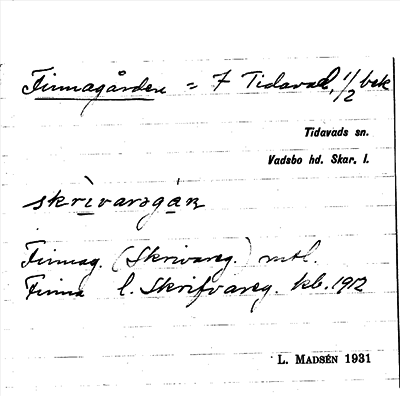 Finnagården = 7 Tidavad, 1/2 bek
Tidavads sn.
Vadsbo hd. Skar. l.
skrìvaregaɳ
Finnag. (Skrivareg.) mtl.
Finna l. Skrifvareg. kb. 1912
L. MADSÉN 1931